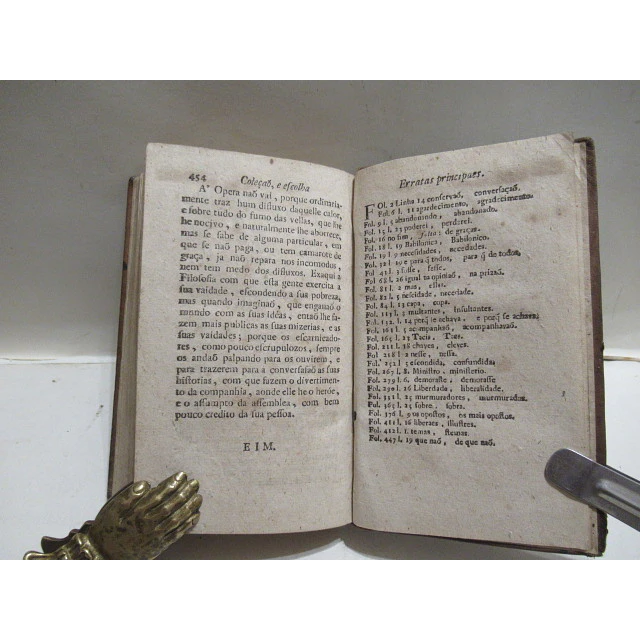 454 Coleçaõ, e escolha
A' Opera naõ vai, porque ordinaria-
mente traz hum disluxo daquelle calor,
e sobre tudo do fumo das vellas, que lhe
he nocivo, e naturalmente lhe aborrece,
mas se sabe de alguma particular, em
que se naõ paga, ou tem camarote de
graça, ja naõ repara nos incomodos,
nem tem medo dos disluxos. Exaqui a
Filosofia com que esta gente exercita a
sua vaidade, escondendo a sua pobreza,
mas quando imaginaõ, que enganaõ o
mundo com as suas idéas, entaõ lhe fa-
zem mais publicas as suas mizerias, e as
suas vaidades; porque os escarnicado-
res, como pouco escrupulozos, sempre
os andaõ palpando para os ouvirem, e
para trazerem para a conversaõ as suas
historias, com que fazem o divertimen-
to da companhia, aonde elle he o heróe,
e o assumpto da assemblea, com bem
pouco credito da sua pessoa.
E I M.
Erratas principaes.
FOl. 2 Linha 14 conservaõ, conversaçaõ.
Fol. 6 l. 21 agardecimento, agradecimento.
Fol. 9 l. 5 abandonando, abandonado.
Fol. 15 l. 23 poderei, perderei.
Fol. 16 no fim, de graças.
Fol. 18 l. 19 Babilonica, Babilonico.
Fol. 19 l. 9 necessidades, necedades.
Fol. 21 l. 19 e para q̃ todos, para q̃ de todos.
Fol. 42 l. 2 fosse, fesse.
Fol. 68 l. 26 igual na prizaõ.
Fol. 81 l. 2 mas, ellas.
Fol. 82 l. 5 felcidade, necedade.
Fol. 84 l. 23 capa, copa.
Fol. 113 l. 5 multantes, Insultantes.
Fol. 132 l. 14 porq̃ se achava, e porq̃ se achava.
Fol. 161 l. 5 acompanhaõ, acompanhavaõ.
Fol. 165 l. 23 Tacis, Taes.
Fol. 211 l. 18 chaves, eleves.
Fol. 218 l. 2 nesse, nessa.
Fol. 252 l. 5 escondida, confundida.
Fol. 267 l. 8. Ministro, ministerio.
Fol. 279 l. 6. demorasse, demorasse
Fol. 290 l. 16 Liberdade, liberalidade.
Fol. 311 l. 23 murmuradores, murmurados.
Fol. 365 l. 23 sobre, sobra.
Fol. 376 l. 9 vos opostos, os mais opostos.
Fol. 411 l. 16 liberaes, illustres.
Fol. 412 l. 1. temas, scenas.
Fol. 447 l. 19 que naõ, de que naõ.